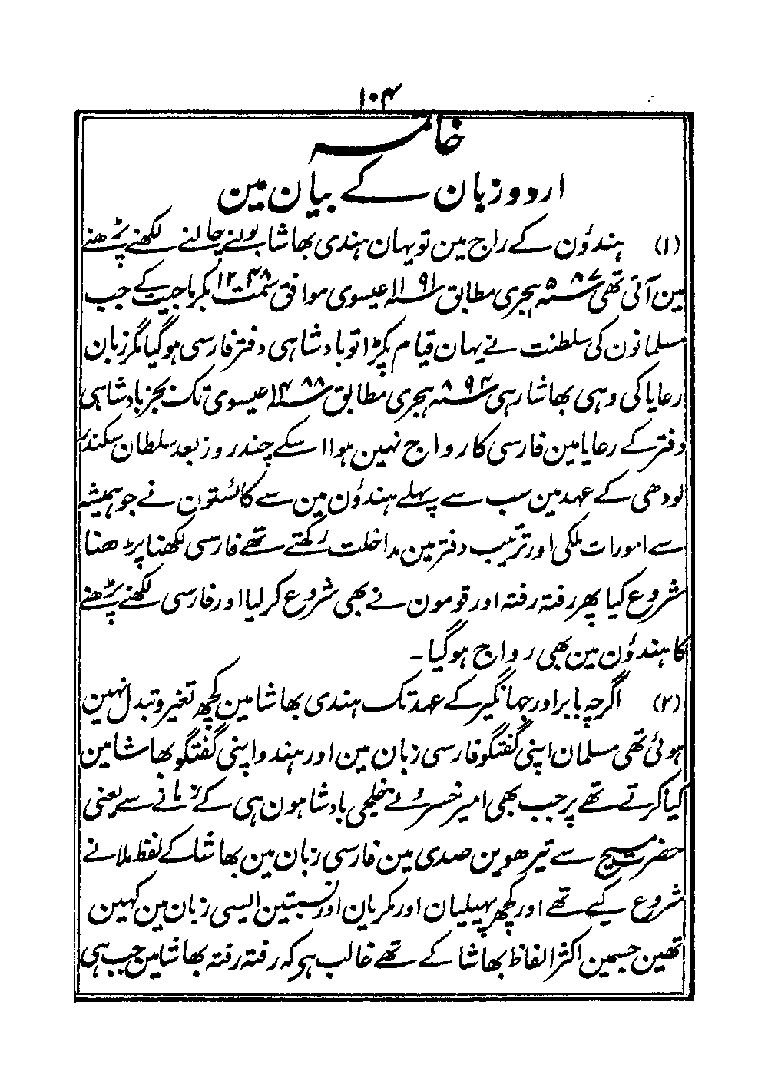 ۱۰۴
خاتمہ
اردو زبان کے بیان مین
(۱) ہندؤن کے راج مین تو یہان ہندی بھاشا بولنے چالنے لکھنے پڑھنے
مین آئی تھی ۵۸۷ سنہ ہجری مطابق ۱۱۹۱ عیسوی موافق سمت ۱۲۴۸ بکرماجیت کے جب
مسلمانون کی سلطنت نے یہان قیام پکڑا تو بادشاہی دفتر فارسی ہو گیا مگر زبان
رعایا کی وہی بھاشا رہی ۸۹۴ سنہ ہجری مطابق ۱۴۸۸ عیسوی تک بجز بادشاہی
دفتر کے رعایا مین فارسی کا رواج نہین ہوا اسکے چند روز بعد سلطان سکندر
لودھی کے عہد مین سب سے پہلے ہندؤن مین سے کائستون نے جو ہمیشہ
سے امورات ملکی اور ترتیب دفتر مین مداخلت رکھتے تھے فارسی لکھنا پڑھنا
شروع کیا پھر رفتہ رفتہ اور قومون نے بھی شروع کر لیا اور فارسی لکھنے پڑھنے
کا ہندؤن مین بھی رواج ہو گیا۔
(۲) اگرچہ بابر اور جہانگیر کے عہد تک ہندی بھاشا مین کچھ تغیر و تبدل نہین
ہوئی تھی مسلمان اپنی گفتگو فارسی زبان مین اور ہندو اپنی گفتگو بھاشا مین
کیا کرتے تھے پر جب بھی امیر خسرو نے خلجی بادشاہون ہی کے زمانے سے یعنی
حضرت مسیح سے تیرھوین صدی مین فارسی زبان مین بھاشا کے لفظ ملانے
شروع کیے تھے اور کچھ پہیلیان اور مکریان اور نسبتین ایسی زبان مین کہین
تھین جسمین اکثر الفاظ بھاشا کے تھے غالب ہی کہ رفتہ رفتہ بھاشا مین جب ہی